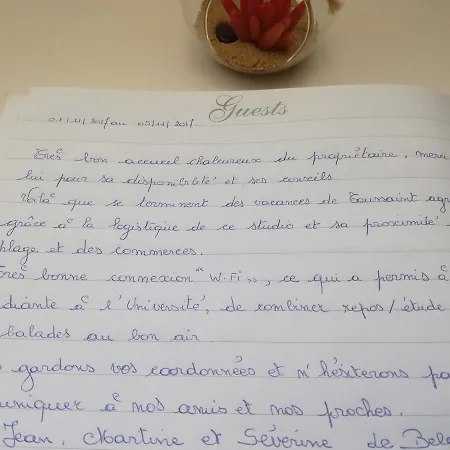 Guests
Très bon accueil chaleureux du propriétaire, merci
lui pour sa disponibilité et ses conseils.
Voilà que se terminent des vacances de Toussaint agr
grâce à la logistique de ce studio et sa proximité
hlage et des commerces.
Très bonne connexion "W.Fi", ce qui a permis à
diante à l'Université, de combiner repos/étude
balades au bon air.
gardons vos coordonnées et n'hésiterons pa
uniquer à nos amis et nos proches.
Jean, Martine et Séverine de Bel